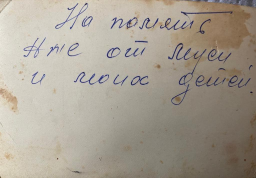 На помять
Яне от Муси
и моих детей.